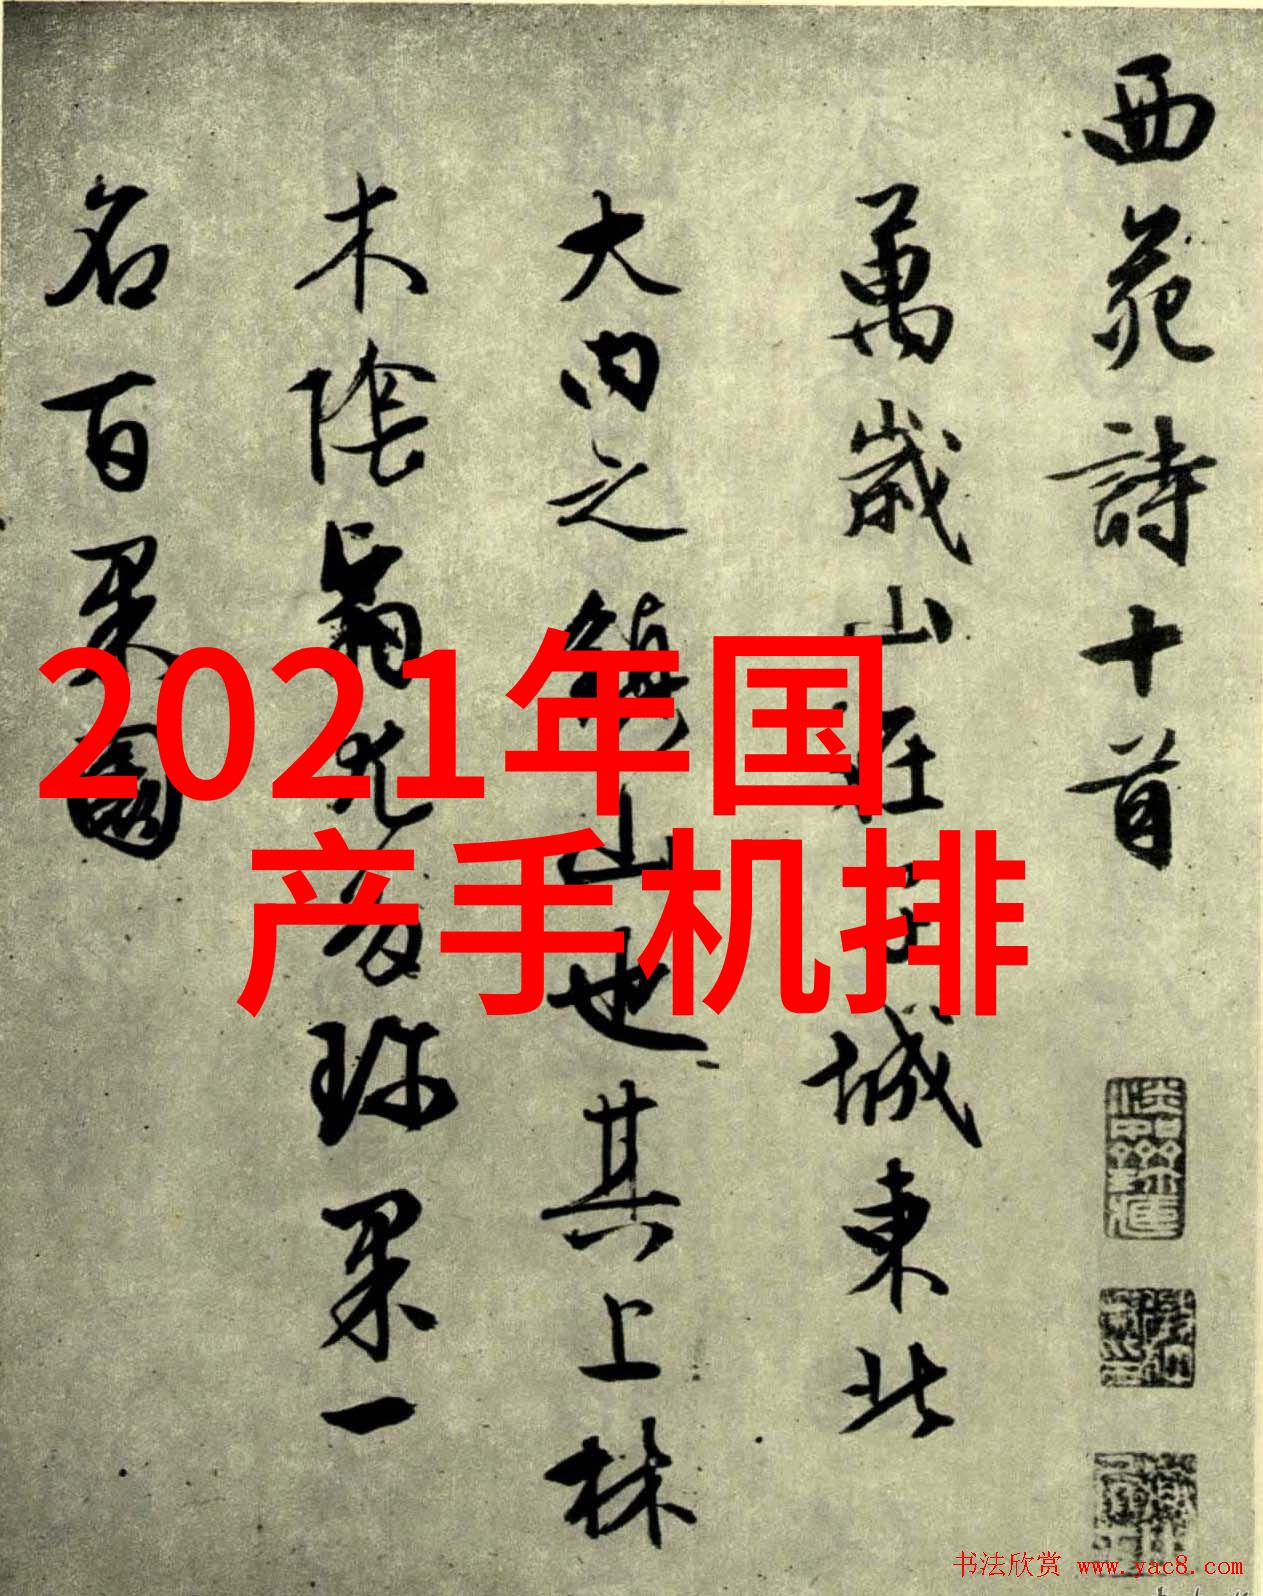 西苑詩十首
萬歲山在皇城東北
大內之鎮山也其上林
木陰翳尤多珍果一
名百果園
2021年国
产手机排
书法欣赏 www.yac8.com